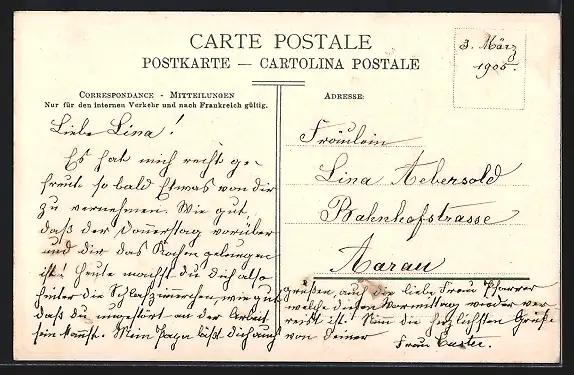 CARTE POSTALE
POSTKARTE — CARTOLINA POSTALE
3. März
1905.
CORRESPONDANCE - MITTEILUNGEN
Nur für den internen Verkehr und nach Frankreich gültig.
ADRESSE:
Liebe Lina!
Es hat mich recht ge-
freut so bald Etwas von dir
zu vernehmen. Wie gut,
daß der Donnerstag vorüber
und dir das Kochen gelungen
ist! Heute machst du dich also
hinter die Schlafzimmerchen, wie gut
daß du ungestört an der Arbeit
sein kannst. Mein Papa läßt dich auch
grüßen, auch die liebe Frau Pfarrer
welche diesen Vormittag wieder ver-
reist ist. Nimm die herzlichsten Grüße
von Deiner
Frau
Fräulein
Lina Aebersold
Bahnhofstrasse
Aarau